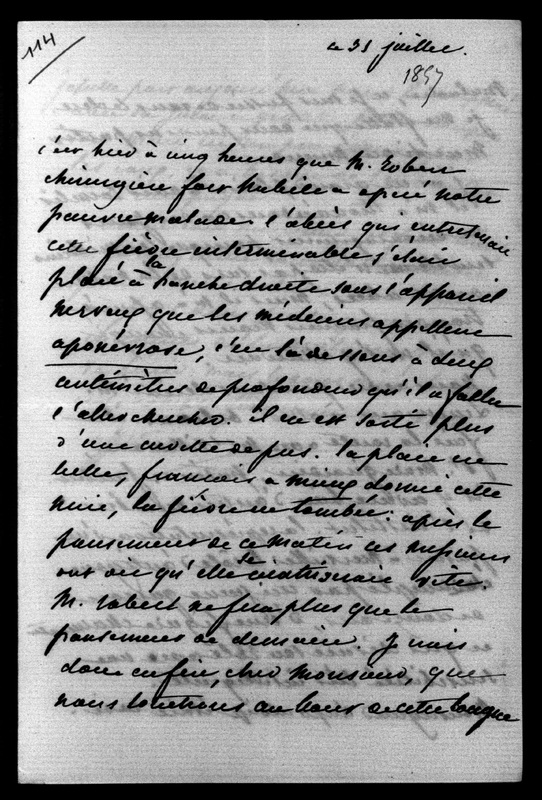 114
ce 31 juillet.
1857
c'est hier à cinq heures que M. Robert
chirurgien fort habile a opéré notre
pauvre malade. l'abcès qui entretenait
cette fièvre interminable s'était
placé à la hanche droite sous l'appareil
nerveux que les médecins appellent
aponévrose, c'est là dessous à cinq
centimètres de profondeur qu'il a fallu
l'aller chercher. il en est sorti plus
d'une cuvette de pus. la place est
belle, françois a mieux dormi cette
nuit, la fièvre est tombée. après le
pansement de ce matin ces messieurs
ont dit qu'elle se cicatriserait vite.
M. robert ne fera plus que le
pansement de demain. Je crois
donc enfin, cher Monsieur, que
nous touchons au bout de cette longue